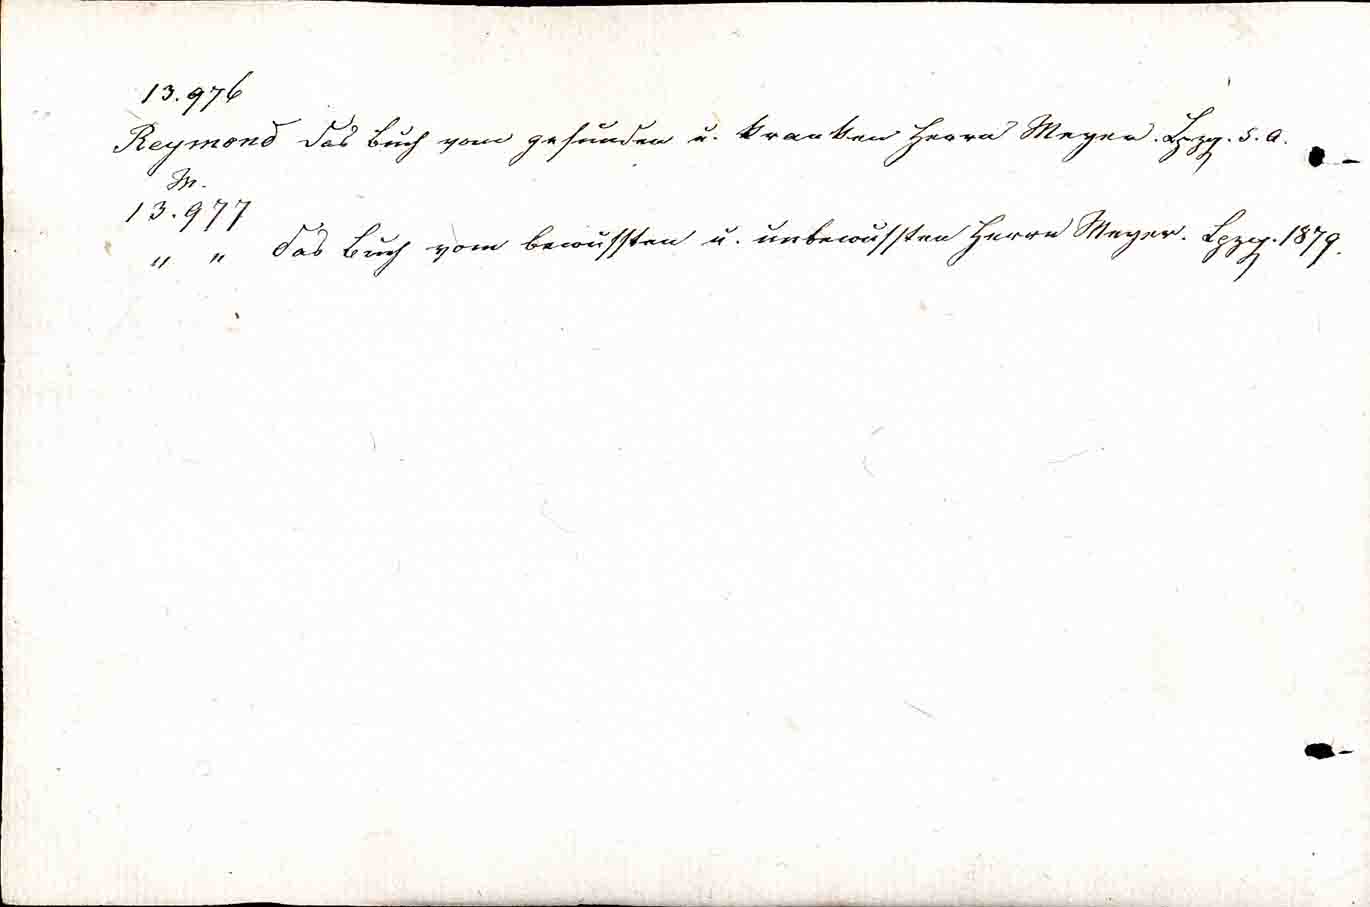 13.976
Reymond Das Buch vom gesunden u. kranken Herrn Meyer. Lpzg. s. a.
M.
13.977
" " Das Buch vom bewussten u. unbewussten Herrn Meyer. Lpzg. 1879.